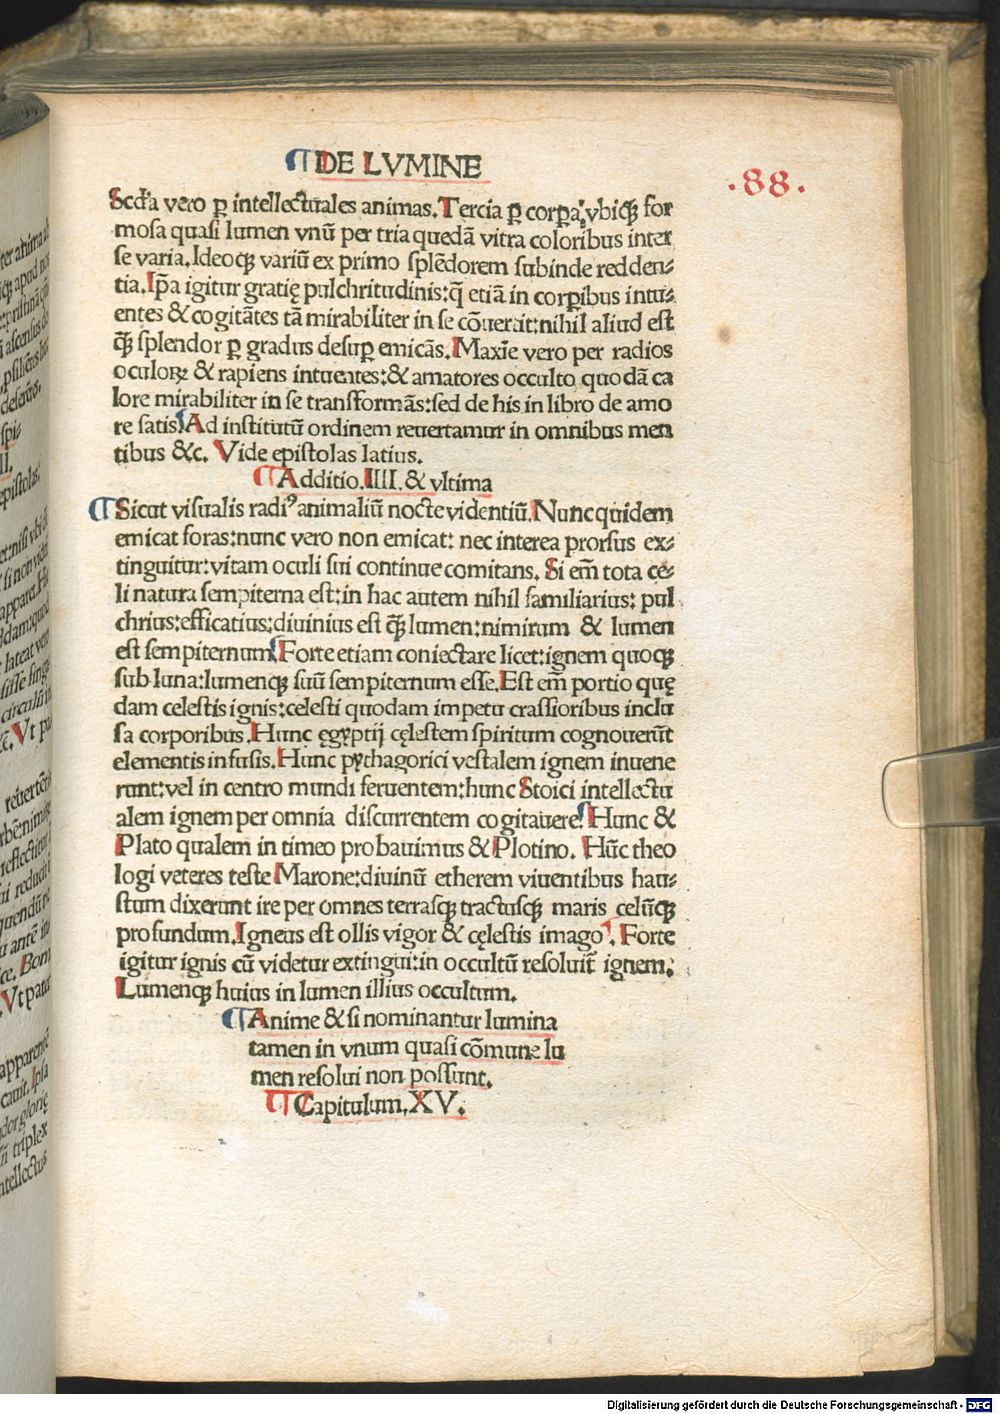 ¶ DE LVMINE
.88.
Scďa vero ꝑ intellectuales animas. Tercia ꝑ corꝑa: vbicꝫ for
mosa quasi lumen vnū per tria quedā vitra coloribus inter
se varia. Ideoqꝫ variū ex primo splēdorem subinde redden⸗
tia. Ip̄a igitur gratię pulchritudinis: q̄ etiā in corꝑibus intu⸗
entes & cogitātes tā mirabiliter in se cōuertit: nihil aliud est
qꝫ̄ splendor ꝑ gradus desuꝑ emicās. Maxīe vero per radios
oculoꝝ & rapiens intuentes: & amatores occulto quodā ca
lore mirabiliter in se transformās: sed de his in libro de amo
re satis ¶ Ad institutū ordinem reuertamur in omnibus men
tibus &c. Vide epistolas latius.
¶ Additio. IIII. & vltima
¶ Sicut visualis radiꝰ animaliū nocte videntiū. Nunc quidem
emicat foras: nunc vero non emicat: nec interea prorsus ex⸗
tinguitur: vitam oculi sui continue comitans. Si em̄ tota ce⸗
li natura sempiterna est: in hac autem nihil familiarius: pul
chrius: efficatius: diuinius est qꝫ̄ lumen: nimirum & lumen
est sempiternum ¶ Forte etiam coniectare licet: ignem quoqꝫ
sub luna: lumenqꝫ suū sempiternum esse. Est em̄ portio quę
dam celestis ignis: celesti quodam impetu crassioribus inclu
sa corporibus. Hunc ęgyptij cęlestem spiritum cognouerūt
elementis infusis. Hunc pythagorici vestalem ignem inuene
runt: vel in centro mundi feruentem: hunc Stoici intellectu
alem ignem per omnia discurrentem cogitauere. ¶ Hunc &
Plato qualem in timeo probauimus & Plotino. Hūc theo
logi veteres teste Marone: diuinū etherem viuentibus hau⸗
stum dixerunt ire per omnes terrasqꝫ tractusqꝫ maris celūqꝫ
profundum. Igneus est ollis vigor & cęlestis imago ¶. Forte
igitur ignis cū videtur extingui: in occultū resoluit̄ ignem:
Lumenqꝫ huius in lumen illius occultum.
¶ Anime & si nominantur lumina
tamen in vnum quasi cōmune lu
men resolui non possunt.
¶ Capitulum. XV.
Digitalisierung gefördert durch die Deutsche Forschungsgemeinschaft - DFG